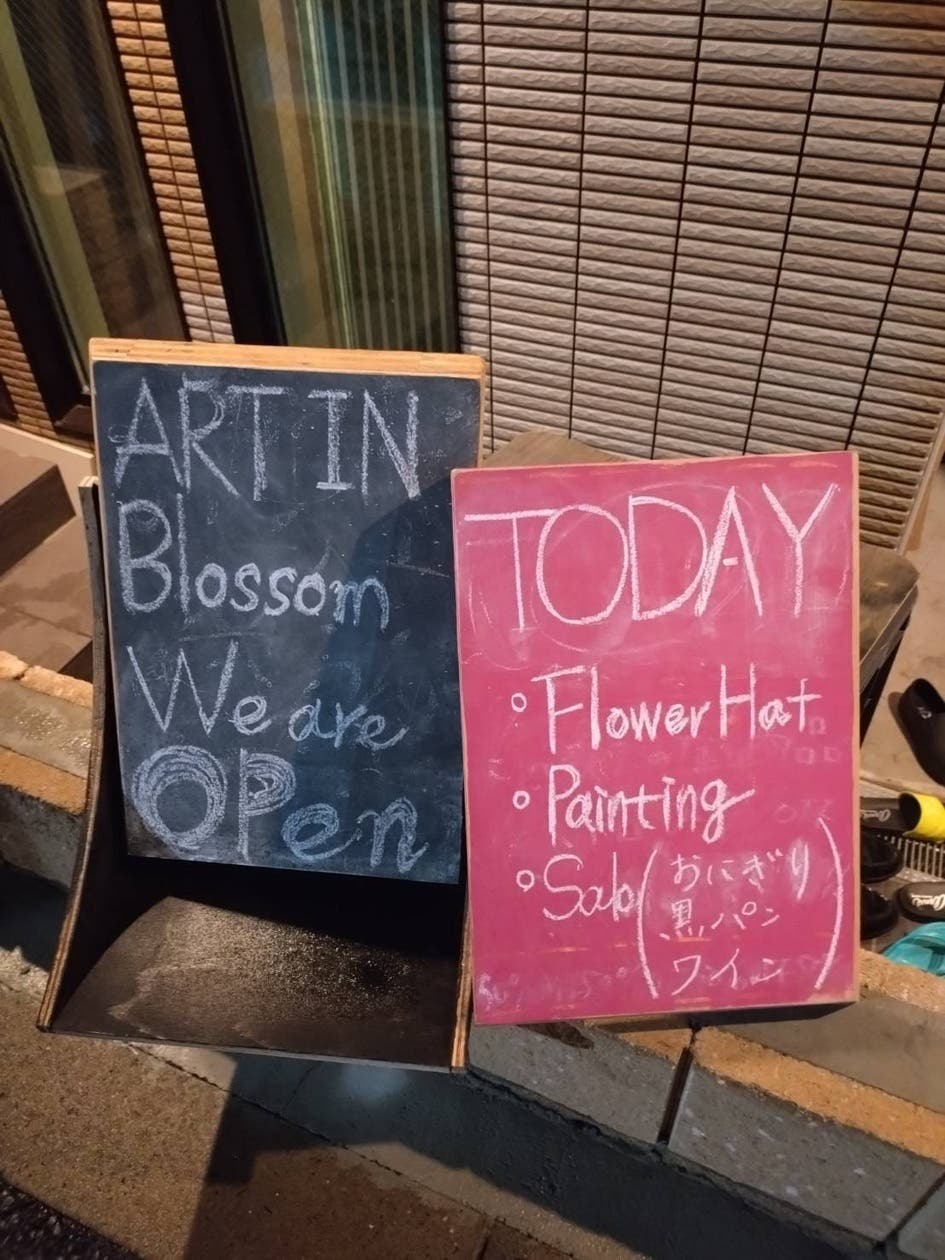 ART IN
Blossom
We are
OPen
TODAY
○ Flower Hat
○ Painting
○ Sab(おにぎり
黒パン
ワイン)